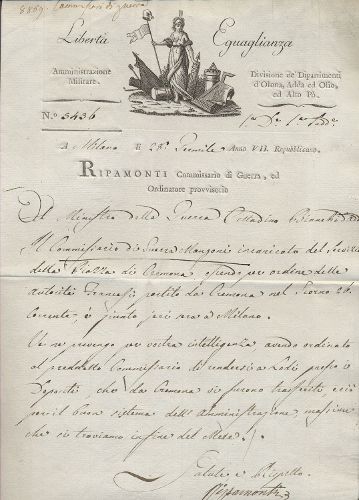 8869. Commissari di guerra
Libertà Eguaglianza
Amministrazione
Militare.
Divisione de' Dipartimenti
d'Olona, Adda ed Olio,
ed Alto Pò.
N.º 3436
A Milano li 28 Germile Anno VII. Repubblicano.
RIPAMONTI Commissario di Guerra, ed
Ordinatore provvisorio
Al Ministro della Guerra Cittadino
Il Commissario di Guerra Manzoni incaricato del Servizio
della Piazza di Cremona essendo per ordine delle
autorità Francesi partito da Cremona nel giorno 26
Corrente, è giunto jeri sera a Milano.
Ve ne prevengo per vostra intelligenza avendo ordinato
al predetto Commissario di rendersi a Lodi presso i
Depositi, che da Cremona vi furono trasferiti, e ciò
per il buon sistema dell'Amministrazione, massime
che ci troviamo in fine del Mese.
Salute e Rispetto.
Ripamonti